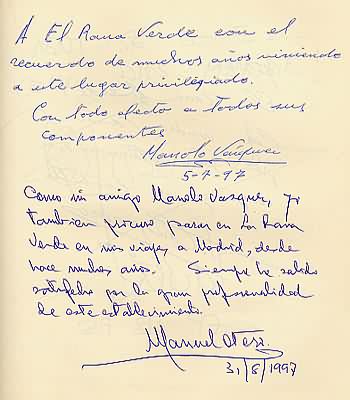 A El Rana Verde con el
recuerdo de muchos años viniendo
a este lugar privilegiado.
Con todo afecto a todos sus
componentes
Manolo Vázquez
5-7-97
Como mi amigo Manolo Vasquez, yo
tambien procuro parar en La Rana
Verde en mis viajes a Madrid, desde
hace muchos años. Siempre he salido
satisfecho por la gran profesionalidad
de este establecimiento.
Manuel Otero
31/8/1997